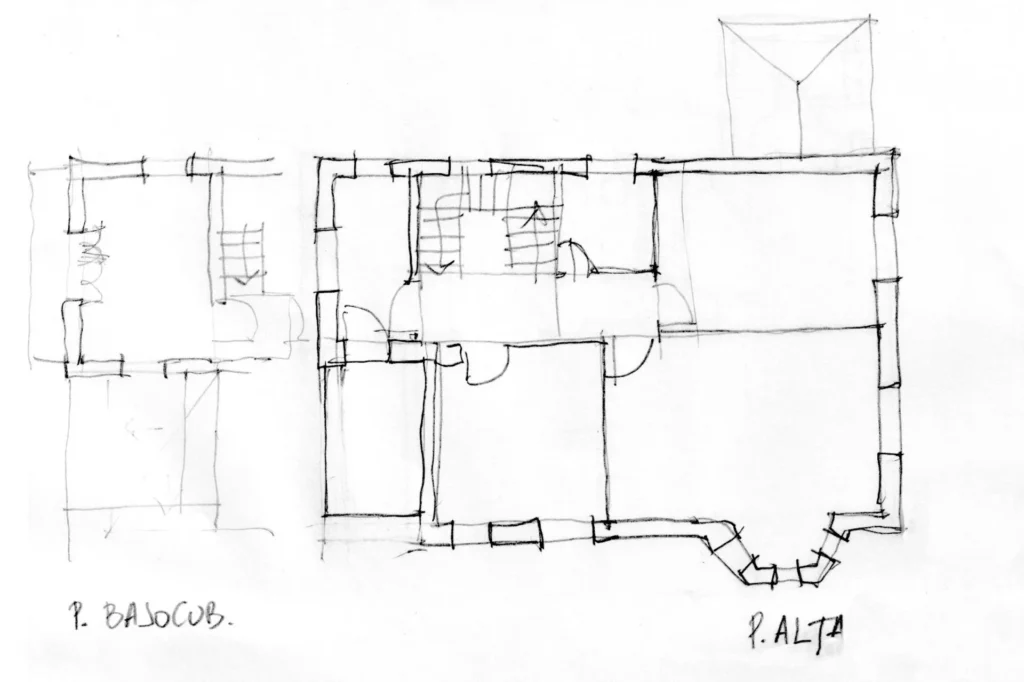 P. BAJOCUB.
P. ALTA